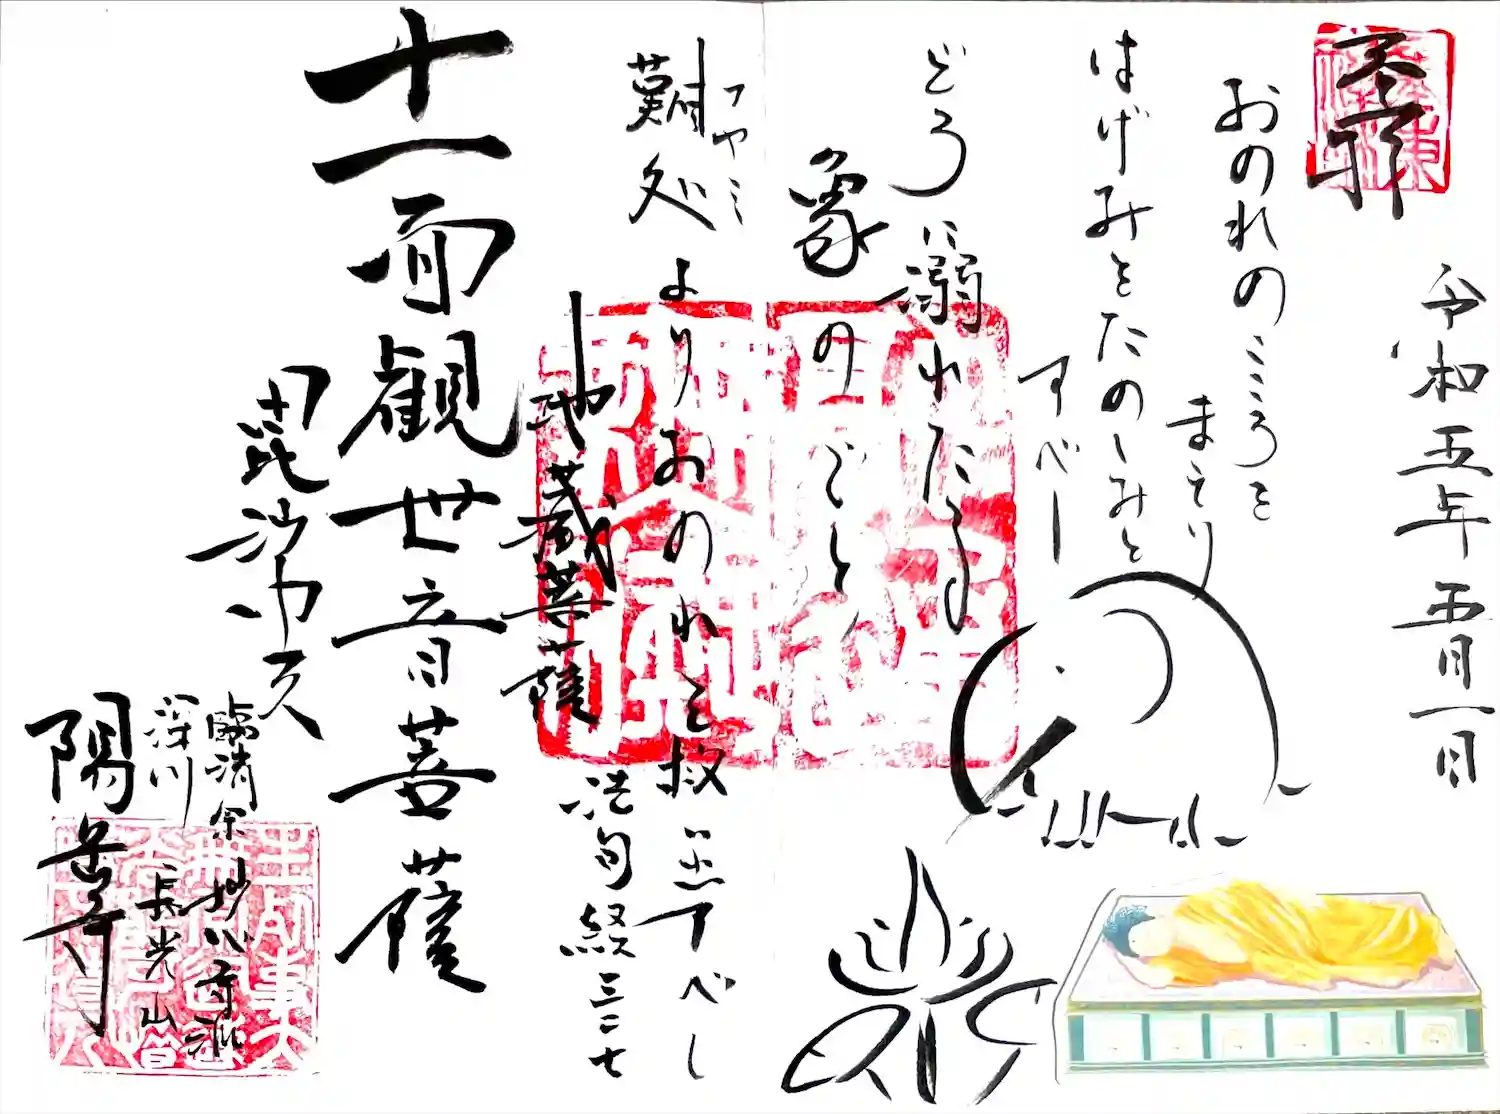 奉拝
令和五年五月一日
おのれのこころを
まもり
はげみをたのしみと
すべし
どろに溺れたる
象のごと
難処
フヤミ
よりおのれを救
出すべし
法句経三二七
地蔵菩薩
十一面観世音菩薩
毘沙門天
臨済宗妙心寺派
深川
長光山
陽岳寺